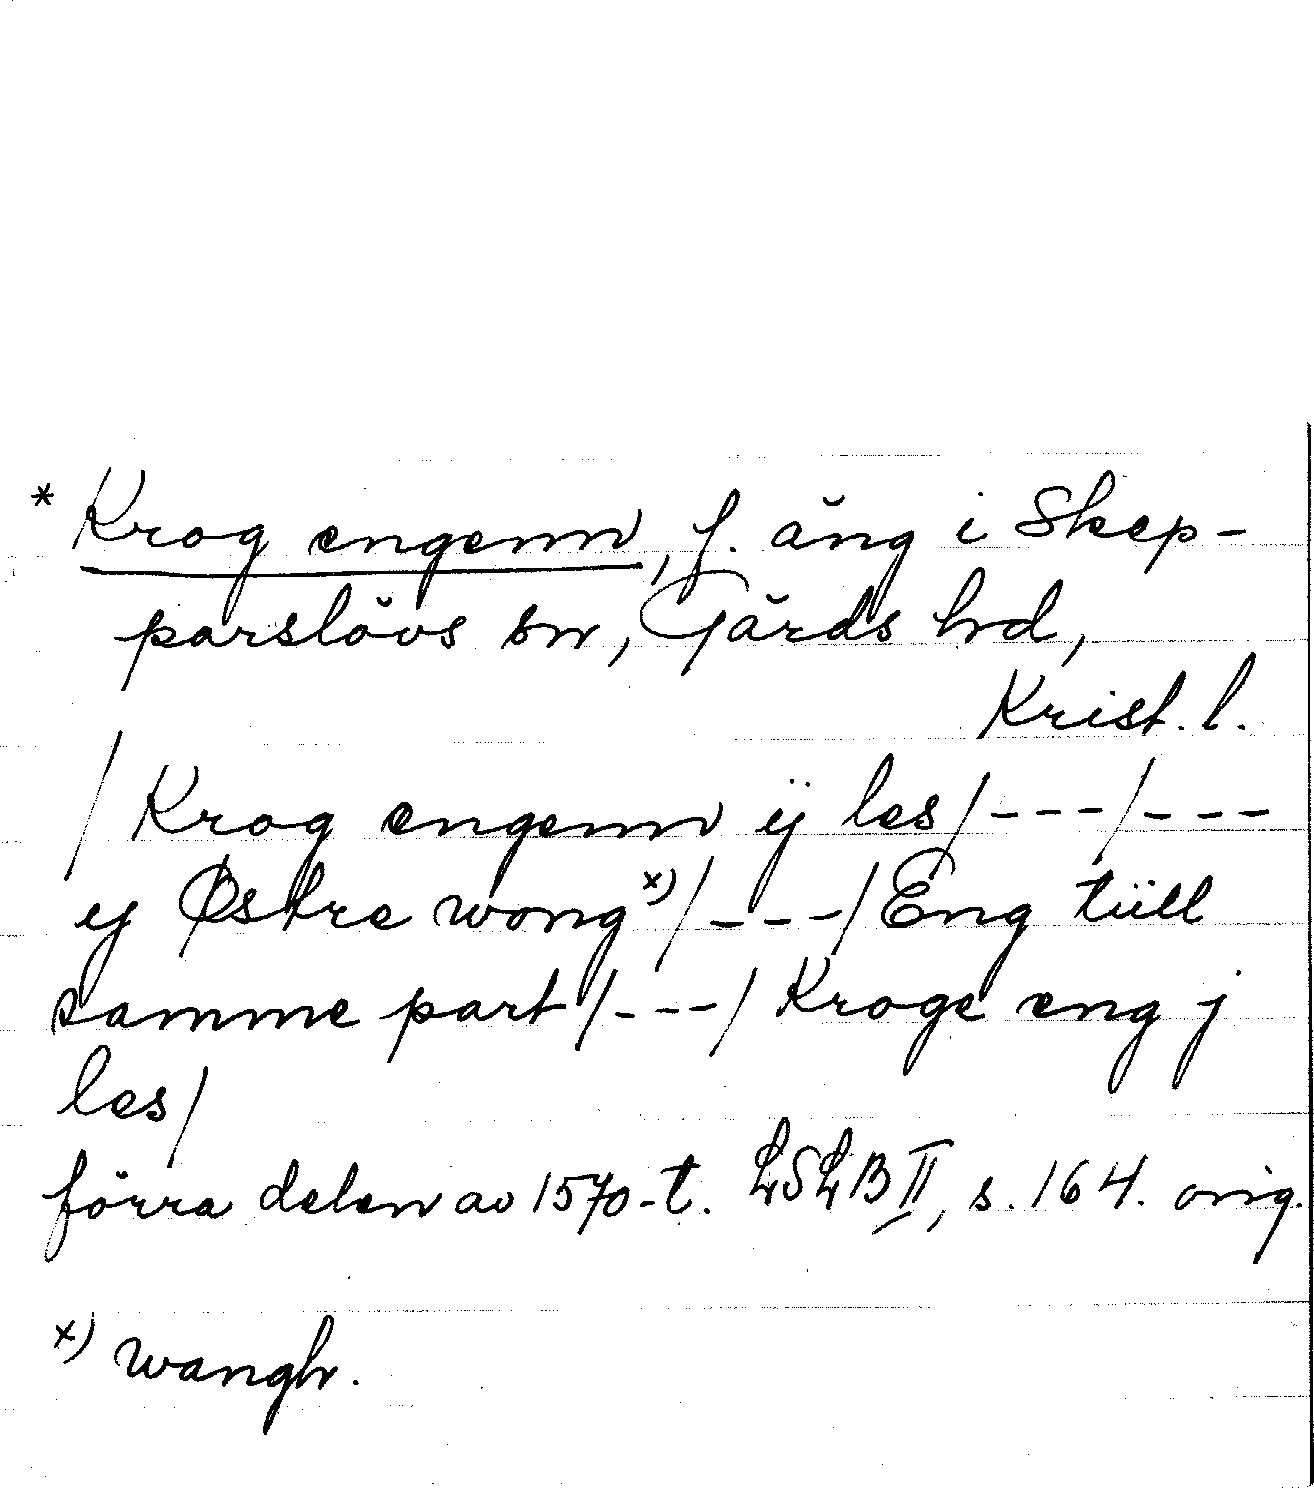 * Krog engenn, f. äng i Skep-
parslövs sn, Gärds hd,
Krist. l.
/ Krog engenn ÿ les/---/---
ej Østre wong x)/---/Eng tüll
samme part/---/Kroge eng j
les/
förra delen av 1570-t. LSLB II, s. 164. orig.
x) wangh.